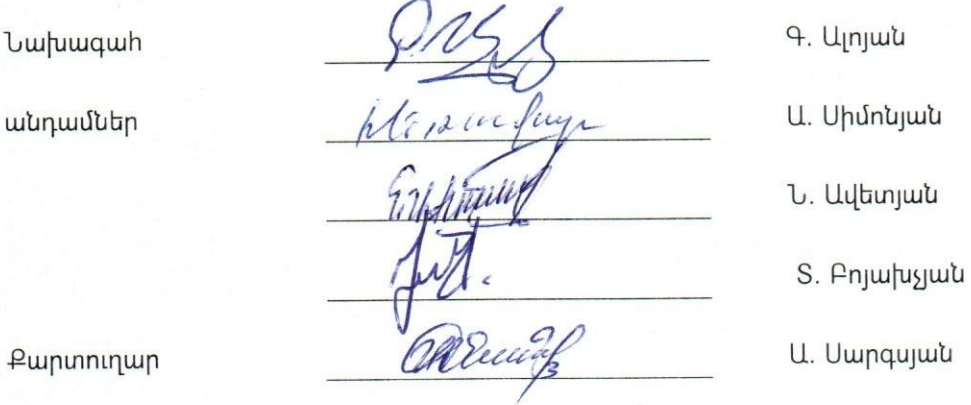 Նախագահ Գ. Ալոյան
անդամներ Ա. Սիմոնյան
Ն. Ավետյան
Տ. Բոյախչյան
Քարտուղար Ա. Սարգսյան